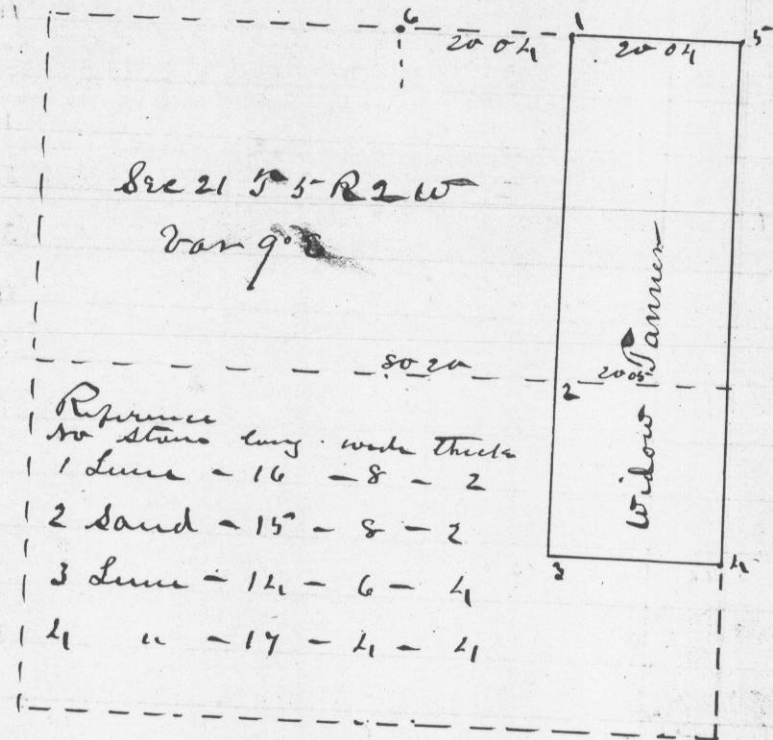 6
1
5
20 04
20 04
Sec 21 T 5 R 2 W
Var 9° E
80 20
2
20 05
Widow Tanner
Reference
No Stone long wide thick
1 Lime - 16 - 8 - 2
2 Sand - 15 - 8 - 2
3 Lime - 14 - 6 - 4
4 " - 17 - 4 - 4
3
4